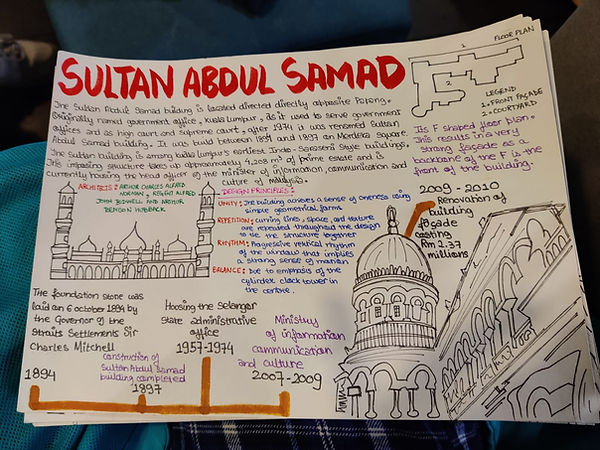 SULTAN ABDUL SAMAD
The Sultan Abdul Samad building is located directed directly opposite Padang.
Originally named government office, Kuala Lumpur, as it used to serve government
offices and as high court and supreme court, after 1974 it was renamed Sultan
Abdul Samad building. It was build between 1894 and 1897 on Merdeka square.
The Sultan building is among Kuala Lumpur's earliest Indo - Saracenic style buildings.
This imposing structure takes up approximately 4,208 m² of prime estate and is
currently housing the head office of the minister of information, communication and
culture of malaysia.
FLOOR PLAN
1
2
LEGEND
1. FRONT FAÇADE
2. COURTYARD
Its F shaped floor plan.
This results in a very
strong façade as a
backbone of the F is the
front of the building.
ARCHITECTS: ARTHUR CHARLES ALFRED
NORMAN, REGENT ALFRED
JOHN BIDWELL AND ARTHUR
BENISON HUBBACK
DESIGN PRINCIPLES:
UNITY: The building achieves a sense of oneness using
simple geometrical forms
REPETITION: curving lines, space, and texture
are repeated throughout the design
to tie the structure together
RHYTHM: Progressive vertical rhythm
of the window that implies
a strong sense of motion
BALANCE: Due to emphasis of the
cylinder clock tower in
the centre.
2009 - 2010
Renovation of
building
façade
costing
Rm 2.37
millions
The foundation stone was
laid on 6 october 1894 by
the Governor of the
Strait Settlements Sir
Charles Mitchell
1894
construction of
Sultan Abdul Samad
building completed
1897
Housing the Selangor
State administrative
office
1957-1974
Ministry
of information
communication
and culture
2007-2009